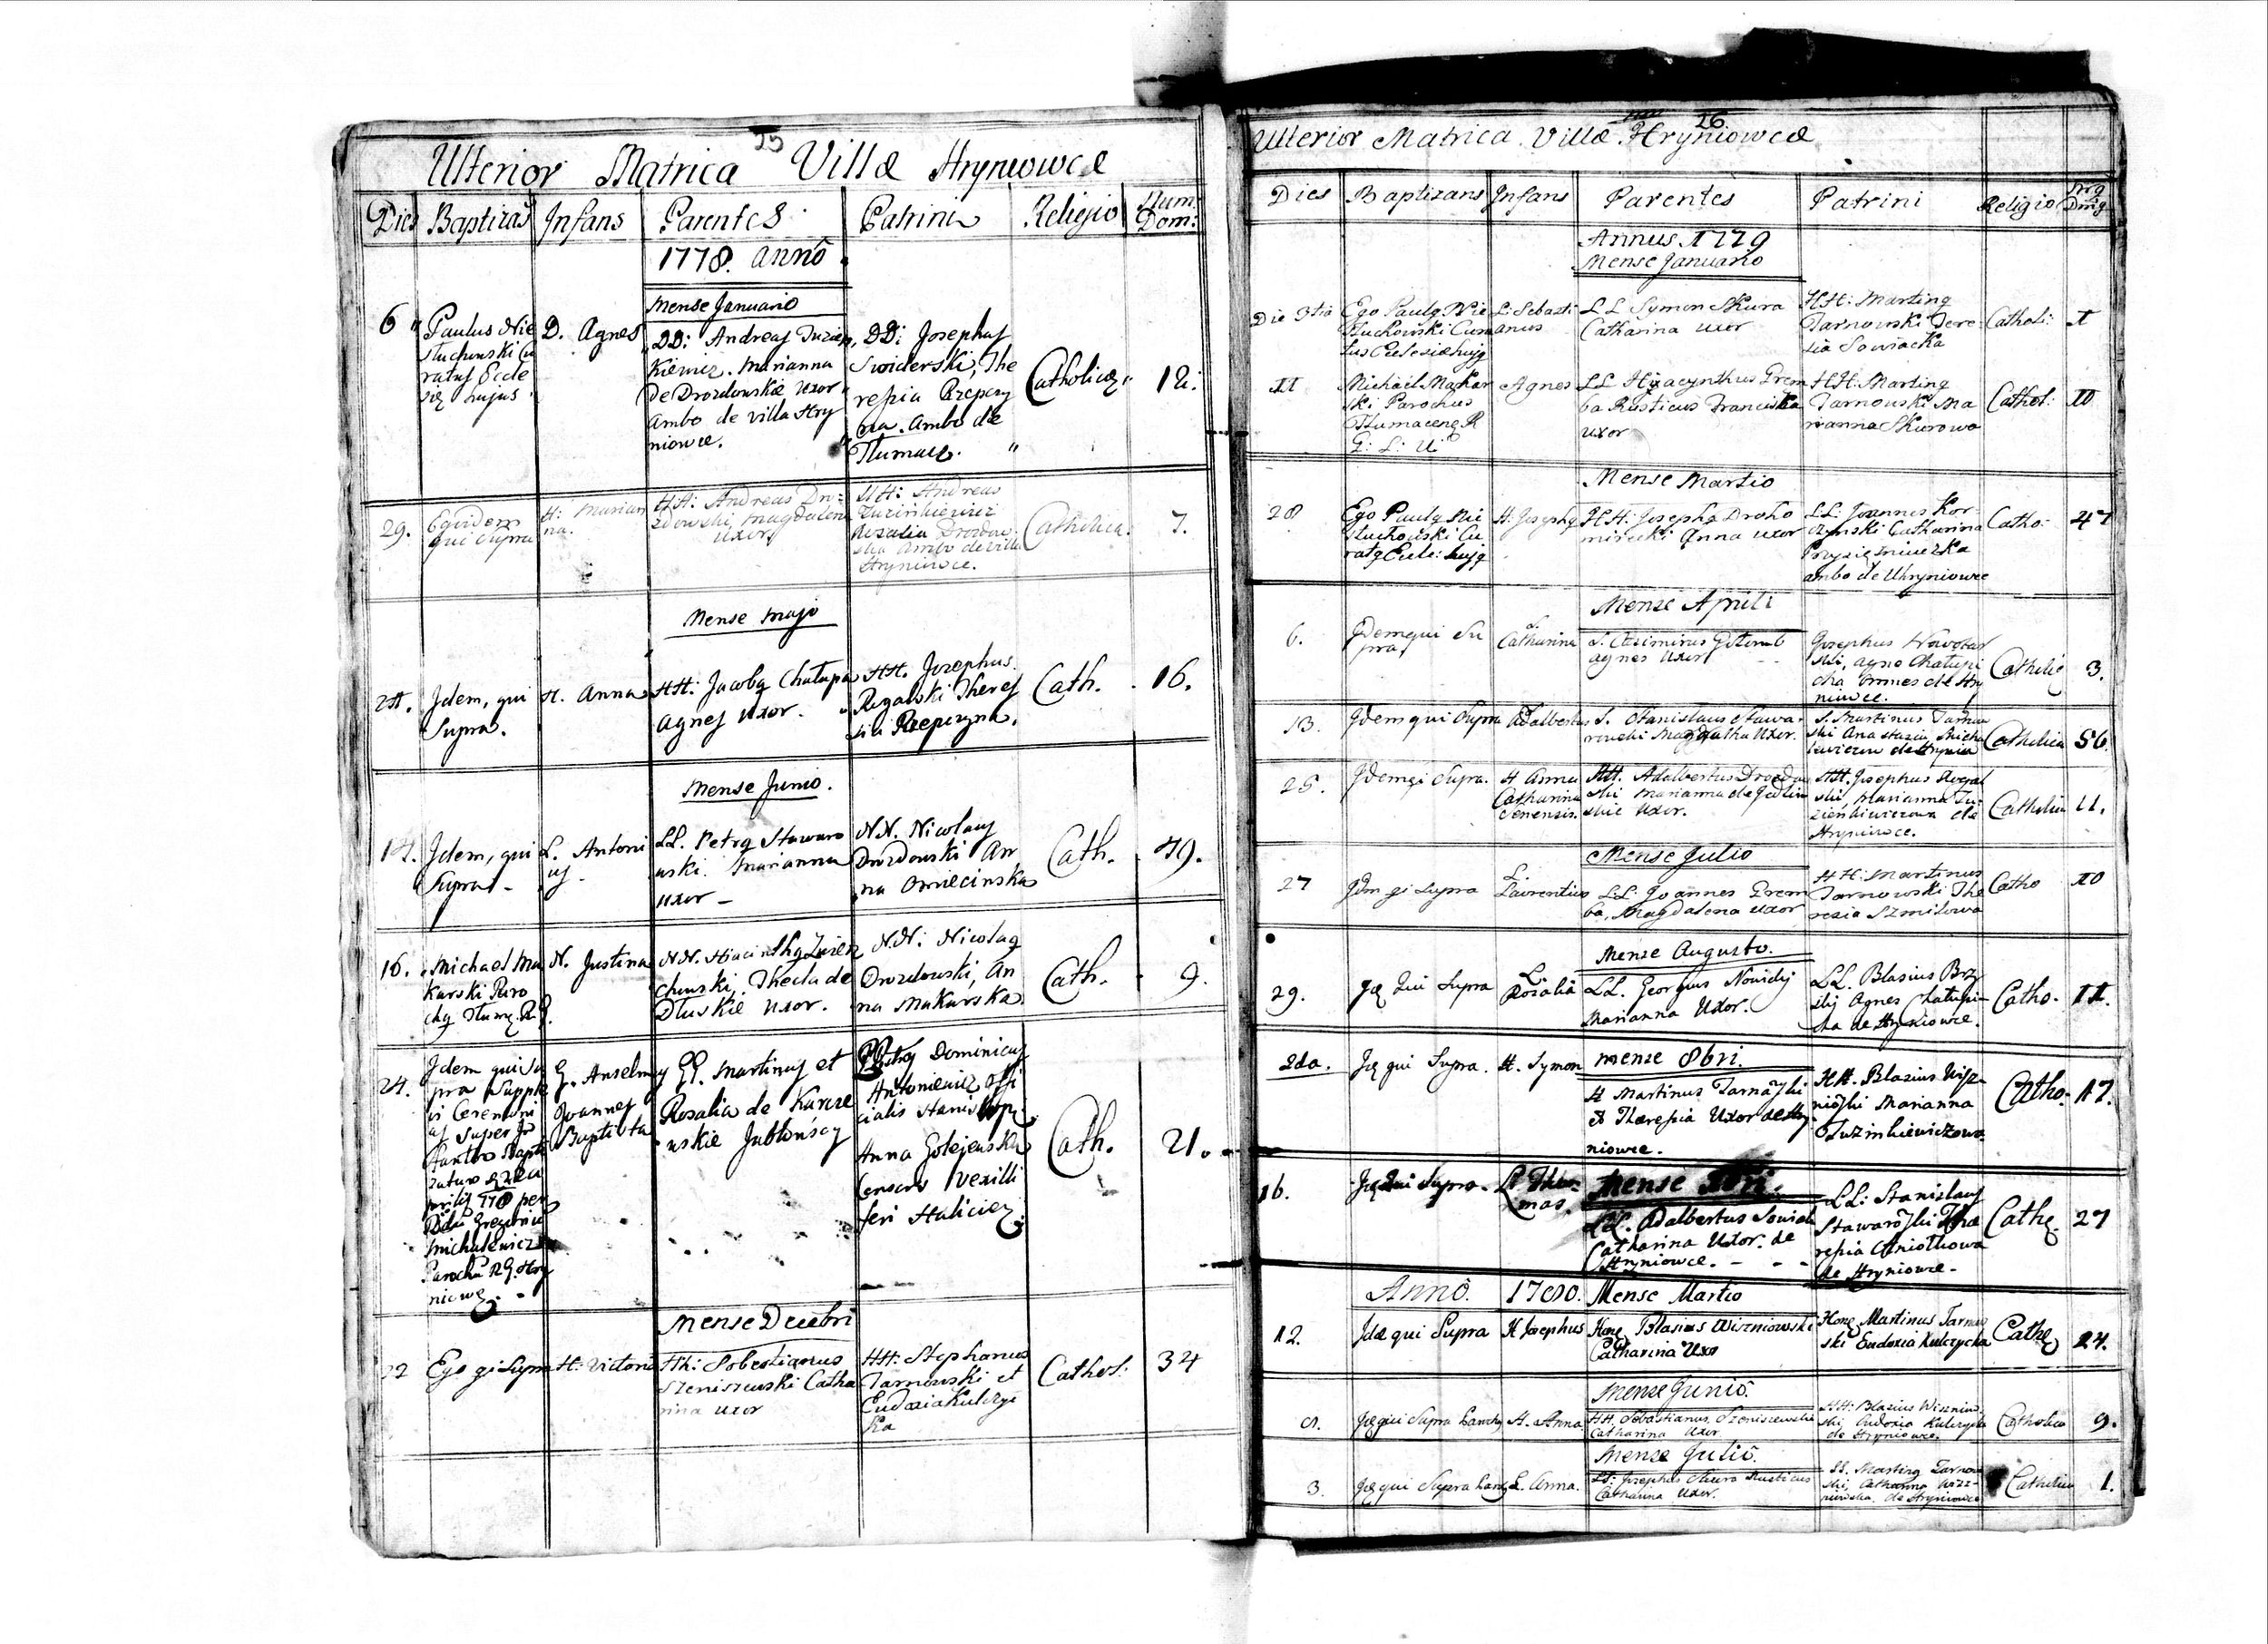 25
Ulterior Matrica Villæ Hryniowcæ
Dies Baptizãs Infans Parentes Patrini Religio Num. Dom:
1778. annô
Mense Januario
6 Paulus Nie
stuchowski Cu
ratus Eccle
siæ hujus
D. Agnes
DD: Andreas Tuzien
kiewicz. Marianna
De Drozdowskie uxor
Ambo de villa Hry
niowce.
DD: Josephus
Swiderski, The
resia Rzepczy
na. Ambo de
Tlumacz.
Catholicæ
12.
29. Eqvidem
qui Supra
H: Marian
na.
HH: Andreas Dro-
zdowski, Magdalena
Uxor
HH: Andreas
Tuzinkiewicz
Rozalia Drozdow
ska Ambo de villa
Hryniowce.
Catholica.
7.
Mense Majo
21. Idem, qui
Supra.
H. Anna
HH: Jacobg Chalupa
Agnes uxor.
HH. Josephus
Rogalski Theres
sia Rzepczyna.
Cath.
16.
Mense Junio.
14. Idem, qui
Supra -
L. Antoni
us -
LL. Petrg Stawaro
wski. Marianna
uxor -
NN. Nicolaus
Drozdowski An
na Omiecinska
Cath.
49.
16. Michael Ma
karski Paro
chg Tlumę. R. G.
N. Justina
NN. Hiacinthg
chowski, Thecla de
Dluskie uxor.
NN: Nicolag
Drozdowski, An
na Makarska
Cath.
9.
24. Idem qui Su
pra Supple
vi Ceremoni
as Super In
fante Bapti
zato
1778 per
Gregoriu
Michalewicz
Parochu R. G. Hry
niowę.
G. Anselmg
Joannes
Baptista
GG. Martinus et
Rosalia de Karcze
wskie Jablonscy
Dominicus
Antoniewicz offi
cialis Stanis
Anna Golejewska
Consors Vexilli
feri Haliciens
Cath.
21.
Mense Decebri
22 Ego qi Supra
H: Victoria
HH: Sebestianus
Szeniszewski Catha
rina uxor
HH: Stephanus
Tarnowski et
Eudoxia Kulczyc
ka
Cathol:
34
26
Ulterior Matrica Villæ Hryniowcæ
Dies Baptizans Infans Parentes Patrini Religio Nrg Dmg
Annus 1779
Mense Januario
Die 3tia Ego Paulg Nie
stuchowski Cura
tus Eclesiæ hujg
L: Sebasti
anus
LL Symon Skura
Catharina uxor
HH: Marting
Tarnowski Tere
sia Sowiacka
Catholi:
1
11 Michael Makar
ski Parochus
Tlumaceng R
G: L: U
Agnes
LL Hyacynthus Grem
ba Rusticus Franciska
uxor
HH: Marting
Tarnowski Ma
rianna Skurowa
Cathol:
10
Mense Martio
28 Ego Paulg Nie
stuchowski Cu
ratg Ecle: hujg
H: Josephg
HH: Josephg Droho
mirecki Anna uxor
LL: Joannes Kor
czynski Catharina
Przysiężniuczka
ambo de Uhryniowce
Catho:
47
Mense Aprili
6. Idem qui Su
pra
L.
Catharina
L. Casimirus
Agnes uxor
Josephus Nowosad
ski, Agne Chalupi
cha omnes de Hry
niowce.
Catholic
3.
13. Idem qui Supra
Adalbertus
S. Stanislaus Stawa-
rowski Magdalha Uxor.
S. Martinus Tarnow
ski Anastazia
de Hrynio
Catholica
56.
25. Idem qi Supra.
H Anna
Catharina
Senensis.
HH. Adalbertus Drozdow
ski Marianna de
skie Uxor.
HH. Josephus Rogal
ski, Marianna Tu-
zienkiewiczowa de
Hryniowce.
Catholica
11.
Mense Julio
27 Idm qi Supra
L:
Laurentius
LL: Joannes Grem
ba, Magdalena uxor
HH: Martinus
Tarnowski The
resia Szmilowa
Catho
10
Mense Augusto.
29. Ję Qui Supra
L.
Rosalia
LL. Georgius
Marianna Uxor.
LL. Blasius Brzy
Agnes Chalupi-
cha de Hryniowce.
Catho.
11.
Mense 8bri.
2da. Ję qui Supra.
H. Symon
H Martinus Tarnoski
et Theresia Uxor de Hry-
niowce.
HH. Blasius Wisz-
nioski Marianna
Tuzinkiewiczowa
Catho.
17.
Mense
16. Ję Qui Supra.
L Tho
mas.
LL. Adalbertus
Catharina Uxor. de
Hryniowce. - - -
LL: Stanislaus
Stawaroski The
resia Aniolkowa
de Hryniowce -
Cathę
27
Annô. 1780. Mense Martio
12. Idæ qui Supra
H Josephus
Hong Blasius Wiszniowski
Catharina Uxo
Hong Martinus Tarnow
ski Eudoxia Kulczycka
Cathę
24.
Mense Juniô.
Ję qui Supra
H. Anna
HH. Sebastianus Szeniszewski
Catharina Uxor
HH: Blazius Wiszniow
ski, Eudoxia Kulczycka
de Hryniowce.
Catholica
9.
Mense Juliô.
3. Ję qui Supra
L. Anna.
LL: Josephus Skura Rusticus
Catharina Uxor.
LL. Marting Tarnow
ski, Catharina Wisz-
niowska de Hryniowce
Catholica
1.